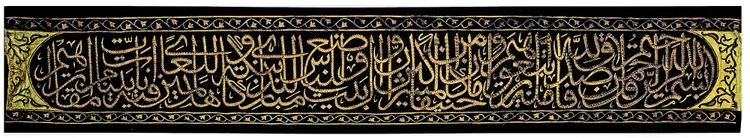 بسم الله الرحمن الرحيم قل صدق الله فاتبعوا ملة إبرهيم حنيفا وما كان من المشركين إن أول بيت وضع للناس للذي ببكة مباركا وهدى للعالمين فيه آيات بينات مقام إبرهيم